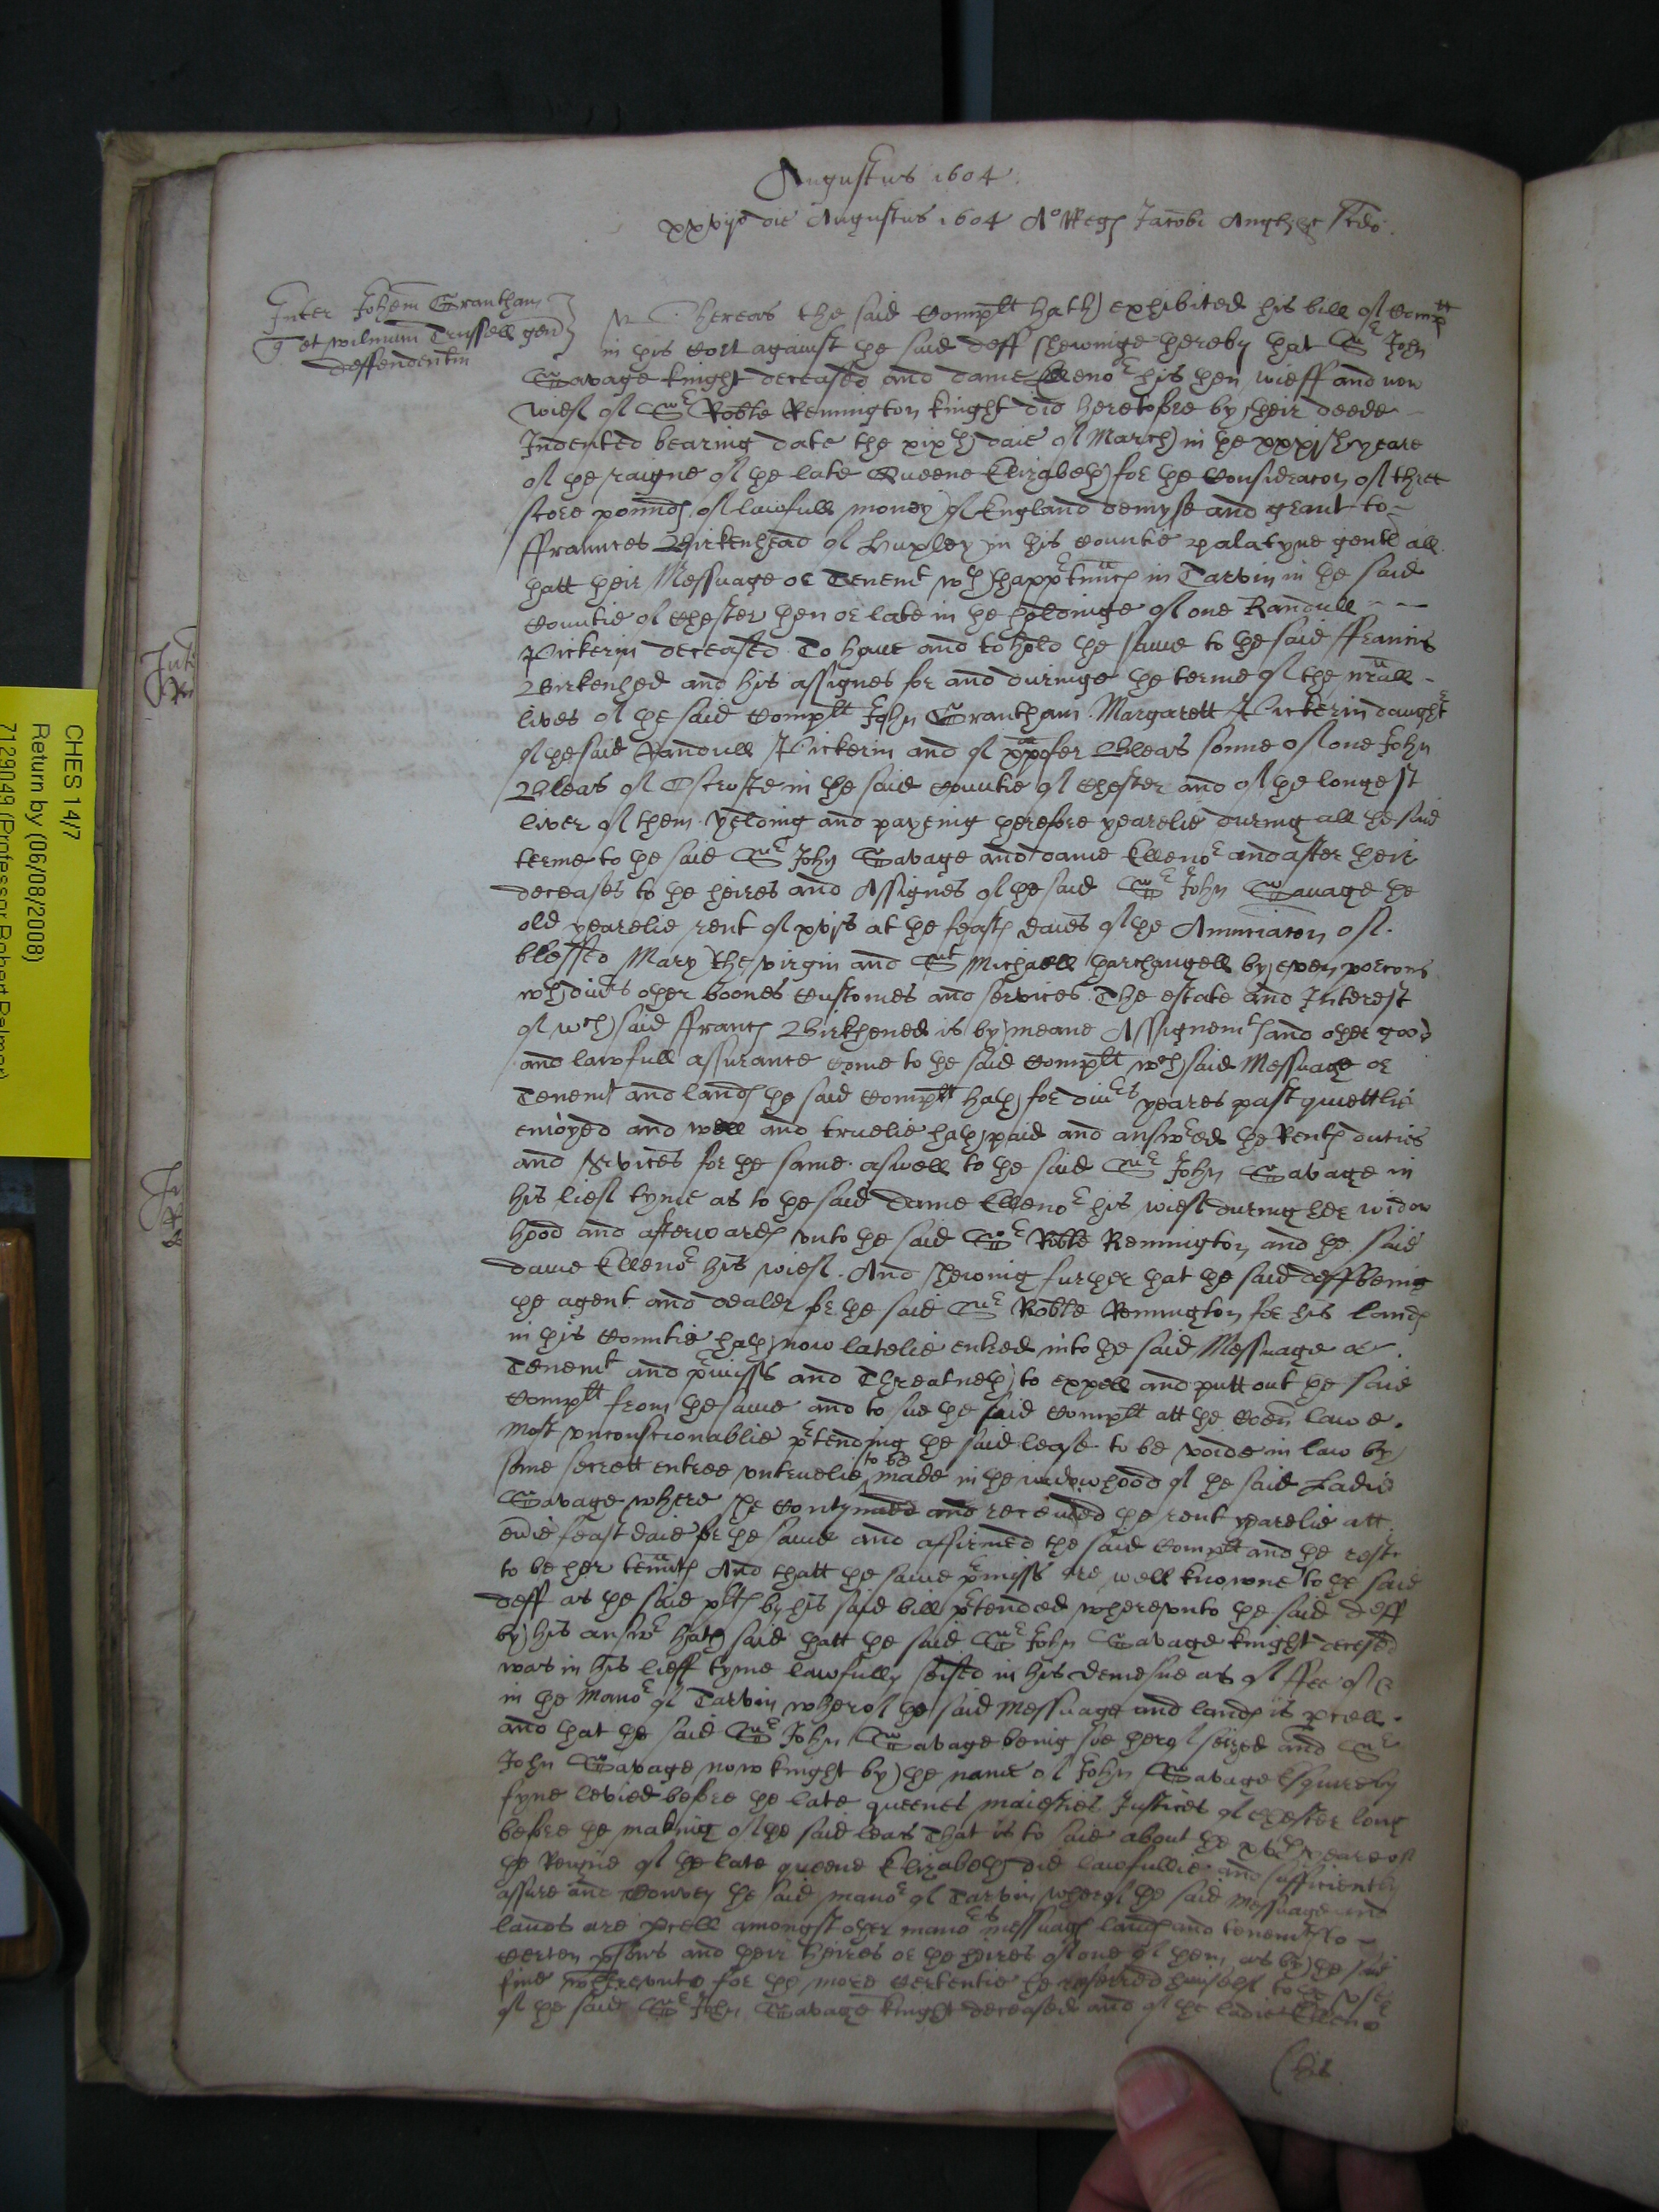 Augustus 1604
xxvijo die Augustus 1604 Ao Regis Jacobi Anglie &c scdo
Inter Johem Grantham
et Willmum Trussell gen
deffendentm
Whereas the said Complt hath exhibited his bill of Complt
in this Cort against the said deff shewinge thereby that Sr John
Savage knight deceased and dame Ellenor his then wieff and now
wief of Sr Robte Remington knight did heretofore by their deede
Indented bearing date the xixth daie of March in the xxxjth yeare
of the raigne of the late Queene Elizabeth for the Consideracon of three
score pounds of lawfull money of England demyse and graunt to
ffraunces Birkenhead of Huxley in this Countie palatyne gentl all
thatt their Messuage or Tenemt wth thapprtnncs in Tarvin in the said
Countie of Chester then or late in the holdinge of one Randull
Pickerin deceased To have and to hold the same to the said ffrancis
Birkenhed and his assignes for and duringe the terme of the nrall
lives of the said Complt John Grantham Margarett Pickerin daughtr
of the said Randull Pickerin and of xpofer Bleas sonne of one John
Bleas of Oscrofte in the said Countie of Chester and of the longest
liver of them yelding and payeing therefore yearelie during all the said
terme to the said Sr John Savage and dame Ellenor and after their
deceases to the heires and Assignes of the said Sr John Savage the
old yearelie rent of xvjs at the feasts daies of the Annuciacon of
blessed Mary the virgin and St Michaell tharchangell by even porcons
wth divrs other boones Customes and services The estate and Interest
of wch said ffrancs Birkhened is by meane Assignemts and other good
and lawfull assurance come to the said Complt wch said Messuage or
Tenemt and lands the said Complt hath for divrs yeares past quiettlie
enioyed and well and truelie hath paid and answred the Rents duties
and Srvices for the same aswell to the said Sr John Savage in
his lief tyme as to the said Dame Ellenor his wief during her widow
hood and afterwards unto the said Sr Robte Remington and the said
dame Ellenor his wief. And shewing further that the said deff being
the agent and dealer for the said Sr Robte Remington for his lands
in this Countie hath now latelie entred into the said Messuage or
Tenemt and prmisss and Threatneth to expell and putt out the said
Complt from the same and to sue the said Complt att the Coen lawe
most unconscionablie prtending the said lease to be voide in law by
some secrett entree untruelie to be made in the widowhood of the said Ladie
Savage where she Contynued and received the rent yearelie att
evie feast daie for the same and affirmed the said Complt and the rest
to be her tennts And thatt the same prmisss are well knowne to the said
deff as the said plts by his said bill prtended whereunto the said deff
by his answr hath said thatt the said Sr John Savage knight decesed
was in his lieff tyme lawfully seised in his demesne as of ffee of &
in the Manor of Tarvin wherof the said Messuage and lands is prcell
and that the said Sr John Savage being soe therof seized and Sr
John Savage now knight by the name of John Savage Esquire by
fyne levied before the late queenes maiesties Justices of Chester long
before the making of the said leas That is to saie about the xvth yeare of
the Reigne of the late queene Elizabeth did lawfullie and sufficiently
assure and Convey the said manor of Tarvin wherof the said Messuage and
lands are prcell amongst other manors messuags lands and tenemts to
certen psons and their heires or the heires of one of them as by the said
fine whereunto for the more certentie he referred himself to the use
of the said Sr John Savage knight deceased and of the ladie Ellenor
his
CHES 14/7
Return by (06/08/2008)
7129049 (Professor Robert Palmer)